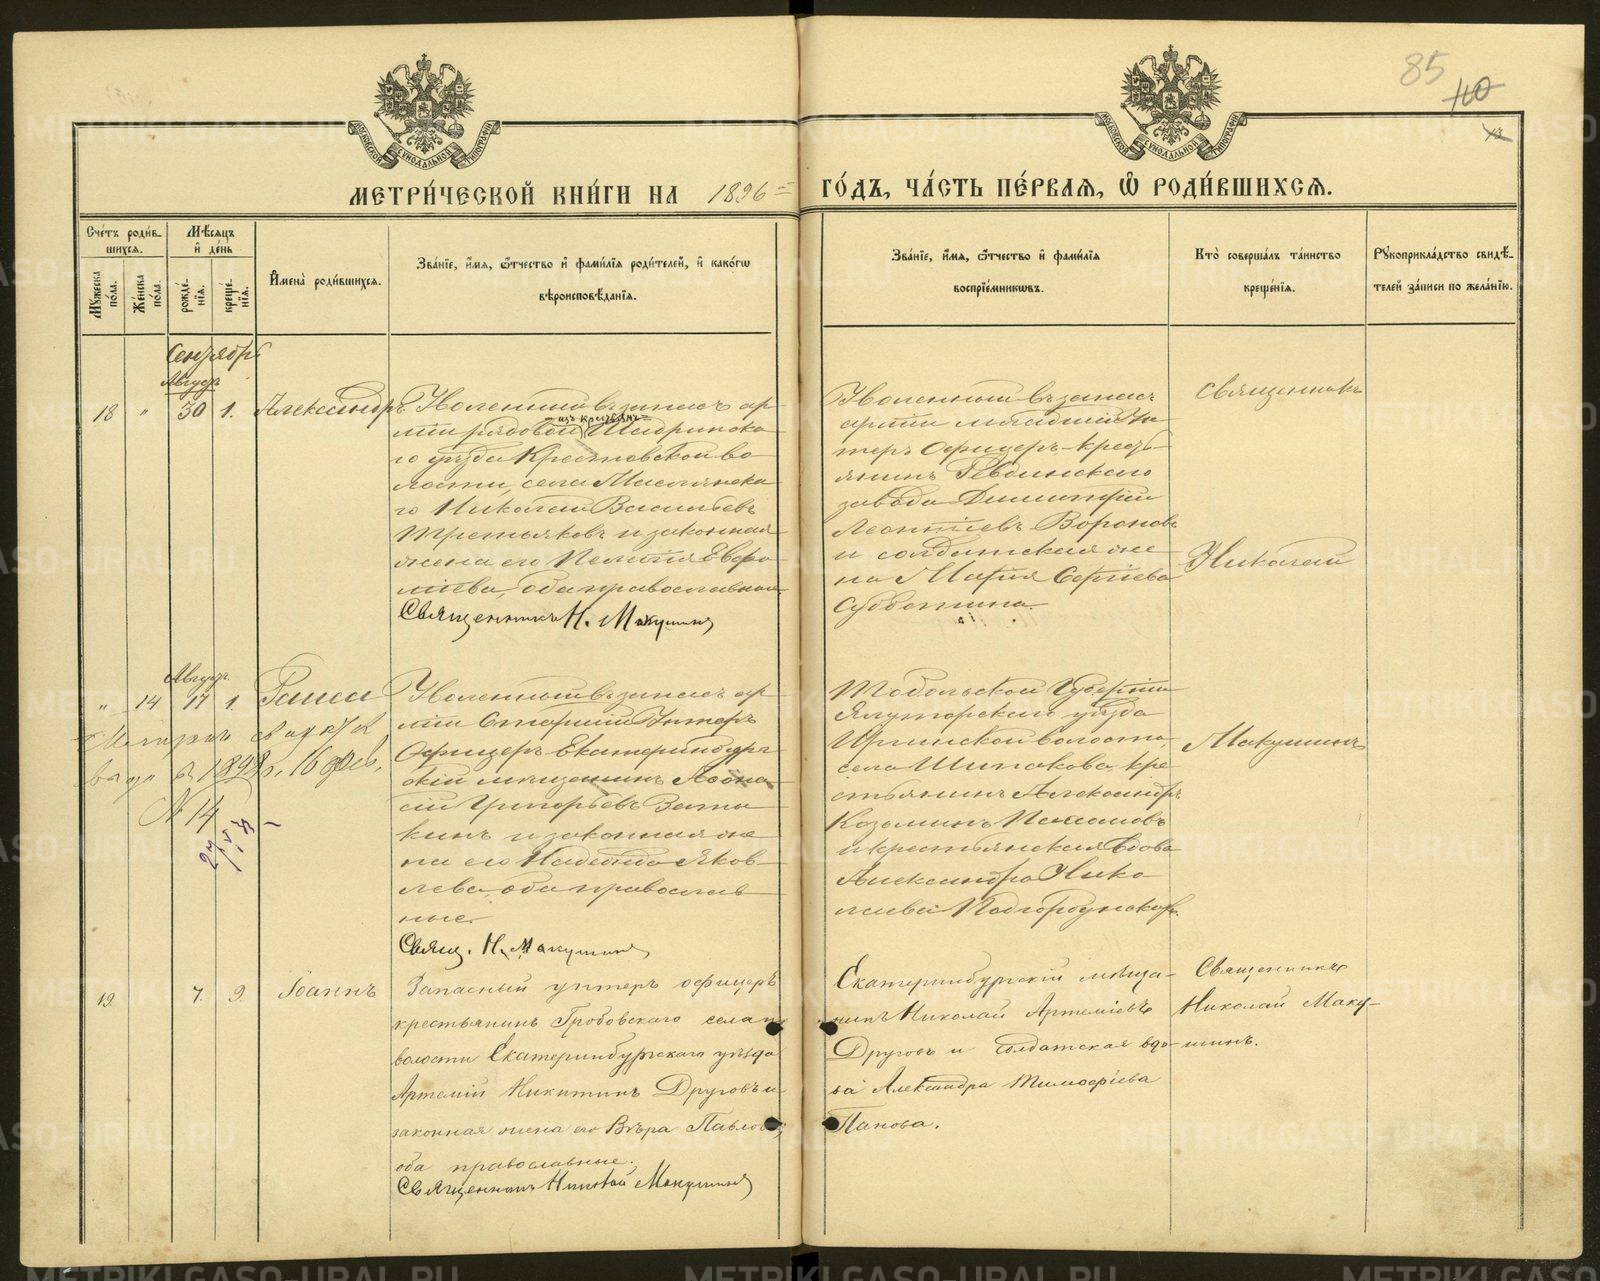 85
110
МОСКОВСКОЙ СѴНОДАЛЬНОЙ ТИПОГРАФІИ
МОСКОВСКОЙ СѴНОДАЛЬНОЙ ТИПОГРАФІИ
МЕТРИ́ЧЕСКОЙ КНИ́ГИ НА 1896 = ГО́ДЪ, ЧА́СТЬ ПЕ́РВАЯ, Ѡ҆ РОДИ́ВШИХСЯ.
Сче́тъ роди́в-
шихся.
Мѣ́сяцъ
и҆ де́нь
Мꙋ́жеска
по́ла.
Же́нска
по́ла.
рожде́-
нїя.
креще́-
нїя.
И҆мена̀ роди́вшихся.
Зва́нїе, и҆́мя, ѻ҆́тчество и҆ фами́лїя роди́телей, и҆ како́гѡ
вѣроисповѣ́данїя.
Зва́нїе, и҆́мя, ѻ҆́тчество и҆ фами́лїя
воспрїе́мникѡвъ.
Кто̀ соверша́лъ та́инство
креще́нїя.
Рꙋкоприкла́дство свидѣ́-
телей за́писи по жела́нїю.
Сентябрь
Август
18 " 30 1. Александръ
Уволенный въ запасъ ар-
міи рядовой изъ крестьянъ Шадринска-
го уѣзда Крестовской во-
лости, села Маслянска-
го Николай Васильевъ
Третьяковъ и законная
жена его Пелагія Евфро-
, оба православные
Священникъ Н. Макушинъ
Уволенный въ запасъ
арміи младшій Ун-
теръ Офицеръ, кресть-
янинъ Ревдинскаго
завода Димитрій
Леонтіевъ Вороновъ
и солдатская же-
на Марія Сергіева
Субботина.
Священникъ
Николай
Макушинъ
Август
" 14 17 1. Раиса
1898 г. 16 фев.
№ 14
Уволенный въ запасъ ар-
міи Старшій Унтеръ
Офицеръ Екатеринбург-
скій мѣщанинъ Аѳана-
сій Григорьевъ
и законная же-
на его Надежда Яков-
лева, оба православ-
ные.
Свящ. Н. Макушинъ
Тобольской Губерніи
Ялуторскаго уѣзда
волости,
села Шипакова, кре-
стьянинъ Александръ
Козьминъ
и крестьянская вдова
Александра Нико-
лаева
19. 7. 9. Іоаннъ
Запасный унтеръ офицеръ
крестьянинъ Гробовскаго села и
волости Екатеринбургскаго уѣзда
Артемій Никитинъ Друговъ и
законная жена его Вѣра Павлова,
оба православные.
Священникъ Николай Макушинъ
Екатеринбургскій мѣща-
нинъ Николай Артеміевъ
Друговъ и солдатская вдо-
ва Александра Тимоѳеева
Панова.
Священникъ
Николай Маку-
шинъ.
METRIKI.GASO-URAL.RU